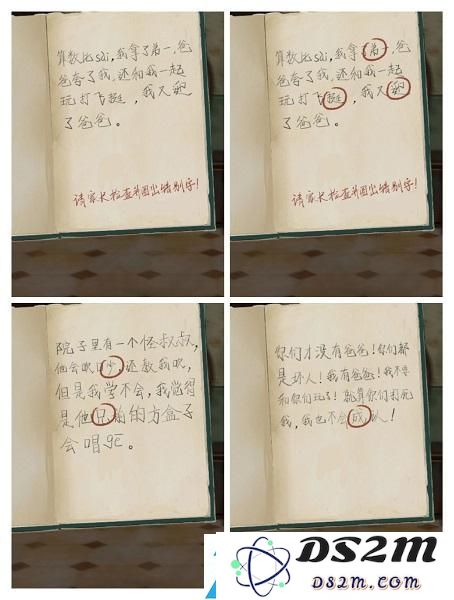 算数比sài,我拿了弟一,爸
爸夸了我,还和我一起
玩打飞挺,我又
了爸爸。
请家长检查并圈出错别字!
算数比sài,我拿了弟一,爸
爸夸了我,还和我一起
玩打飞挺,我又
了爸爸。
请家长检查并圈出错别字!
院子里有一个怪叔叔,
他会吹口少,还教我吹,
但是我学不会,我觉得
是他兄前的方盒子
会唱gē。
你们才没有爸爸!你们都
是坏人!我有爸爸!我不要
和你们玩了!就算你们打死
我,我也不会成认!
DS2M
DS2m.com